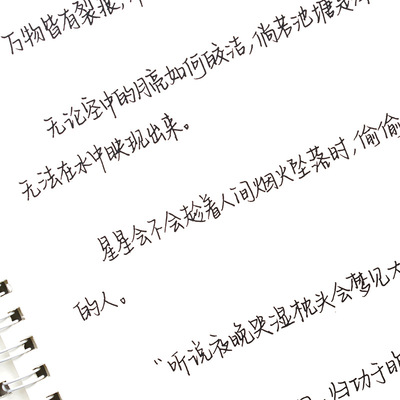 万物皆有裂痕，
无论空中的月亮如何皎洁，倘若池塘
无法在水中映现出来。
星星会不会趁着人间烟火坠落时，偷偷
的人。
“听说夜晚哭湿枕头会梦见
归功于